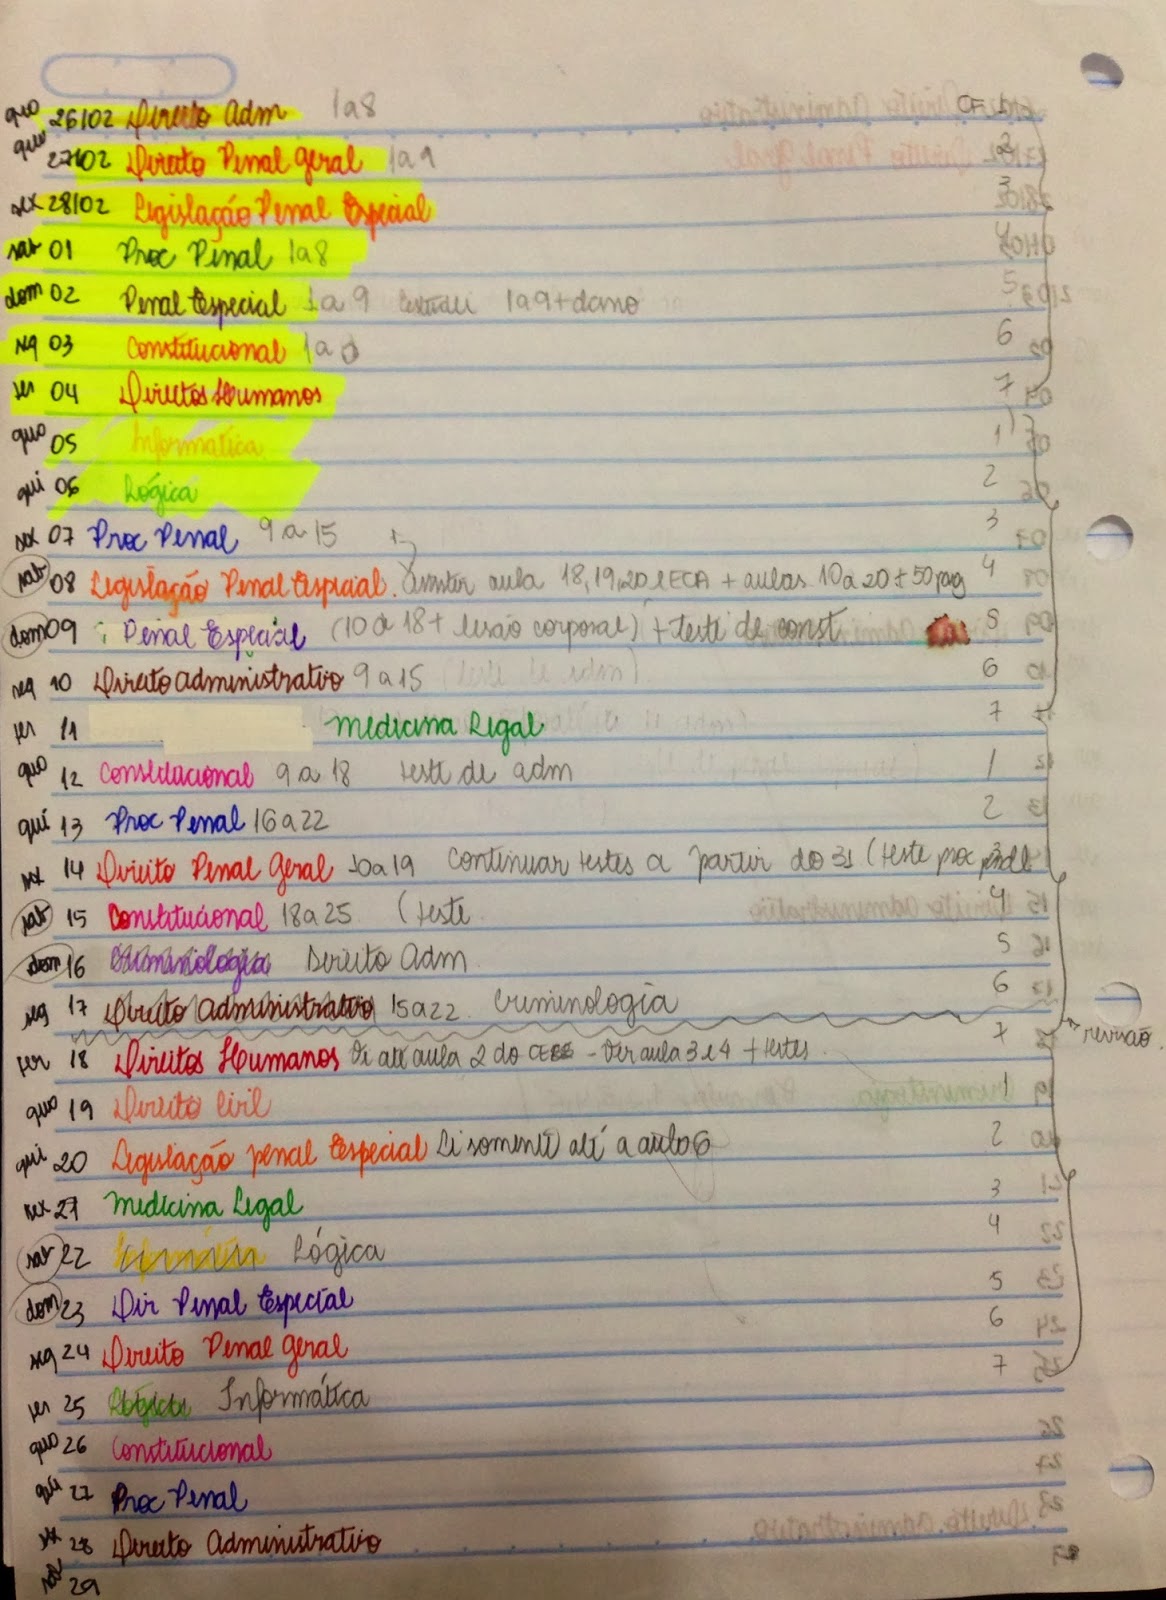 qua 26/02 Direito Adm 1a8
qui 27/02 Direito Penal Geral 1a9 2
sex 28/02 Legislação Penal Especial 3
sab 01 Proc Penal 1a8 4
dom 02 Penal Especial 1a9 1a9+dano 5
seg 03 Constitucional 1a 6
ter 04 Direitos Humanos 7
qua 05 Informática 1
qui 06 Lógica 2
sex 07 Proc Penal 9 a 15 3
sab 08 Legislação Penal Especial. Assistir aula 18,19,20 e ECA + aulas 10 a 20 + 50 pag 4
dom 09 Penal Especial (10 a 18 + lesão corporal) + teste de const 5
seg 10 Direito administrativo 9 a 15 (teste de adm) 6
ter 11 Medicina Legal 7
qua 12 Constitucional 9 a 18 teste de adm 1
qui 13 Proc Penal 16 a 22 2
sex 14 Direito Penal Geral 10a19 continuar testes a partir do 31 (teste proc penal 3
sab 15 Constitucional 18 a 25 (teste 4
dom 16 Criminologia Direito Adm 5
seg 17 Direito Administrativo 15 a 22 Criminologia 6
revisão
ter 18 Direitos Humanos Vi até aula 2 do - Ver aula 3 e 4 + testes 7
qua 19 Direito Civil 1
qui 20 Legislação penal Especial Li somente até a aula 6 2
sex 21 Medicina Legal 3
sab 22 Informática Lógica 4
dom 23 Dir Penal Especial 5
seg 24 Direito Penal Geral 6
ter 25 Lógica Informática 7
qua 26 Constitucional
qui 27 Proc Penal
sex 28 Direito Administrativo
sab 29